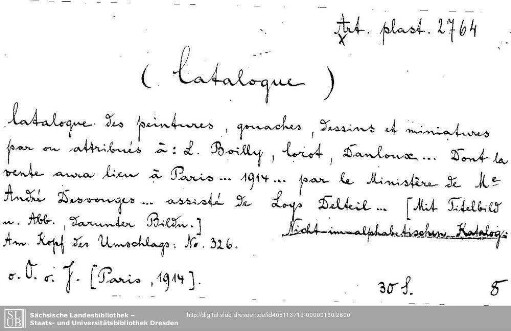 Art. plast. 2764
x
( Catalogue )
Catalogue des peintures, gouaches, dessins et miniatures
par ou attribués à: L. Boilly, Corot, Danloux ... Dont la
vente aura lieu à Paris ... 1914 ... par le Ministère de Me
André Desvouges ... assisté de Loys Delteil ... [Mit Titelbild
u. Abb., darunter Bildn.] Nicht im alphabetischen Katalog.
Am Kopf des Umschlags: No. 326.
o. O. o. J. [Paris, 1914].
30 S. 8
SLUB
Sächsische Landesbibliothek –
Staats- und Universitätsbibliothek Dresden